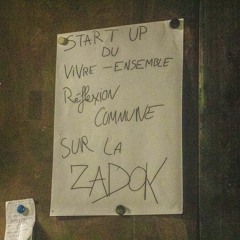 START UP
DU
VIVRE - ENSEMBLE
Réflexion
COMMUNE
SUR LA
ZADOK